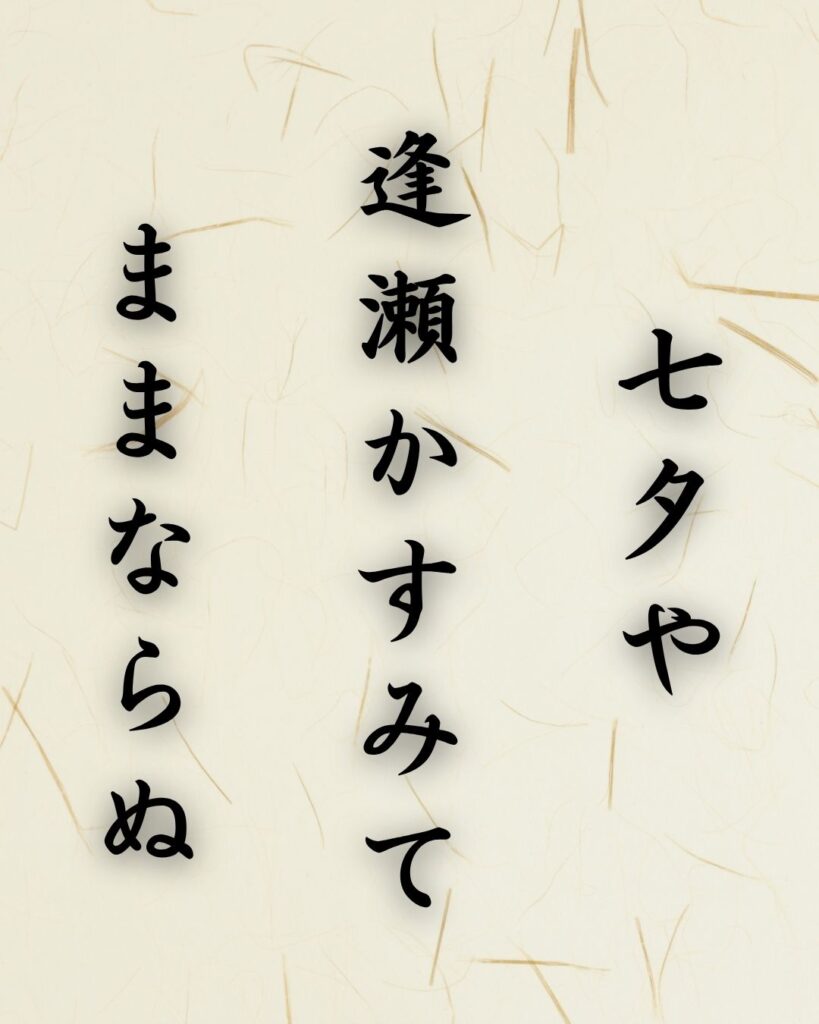 七夕や
逢瀬かすみて
ままならぬ